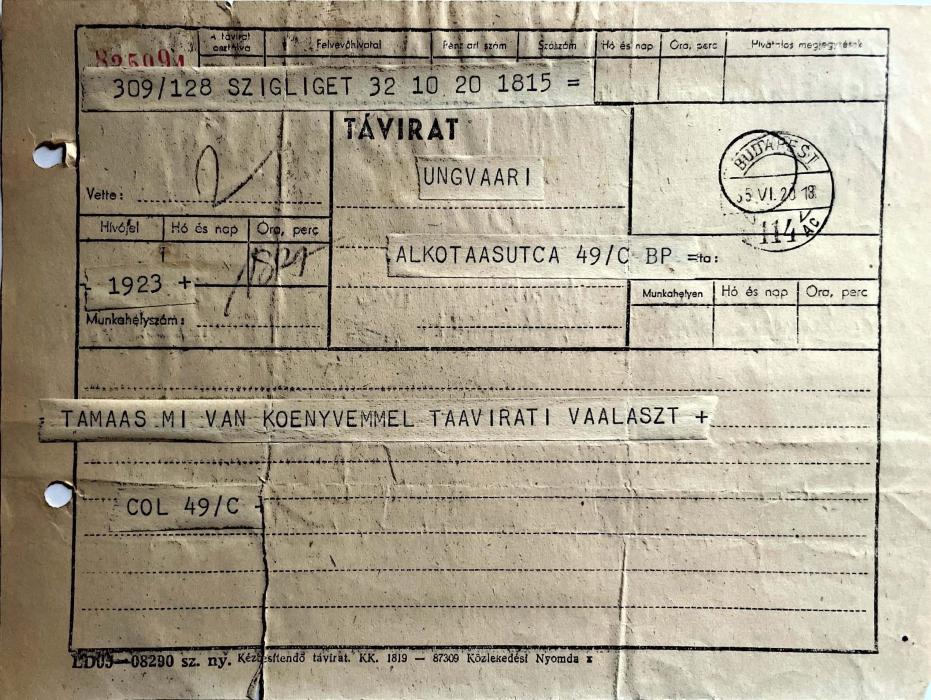 825091
A távirat osztálya Felvevőhivatal Pénz art szám Szószám Hó és nap Óra, perc Hivatalos megjegyzések
309/128 SZIGLIGET 32 10 20 1815 =
TÁVIRAT
BUDAPEST
UNGVAARI
Vette:
VI. 20 18
114 AC
Hívófel Hó és nap Óra, perc
ALKOTAASUTCA 49/C BP =ta:
- 1923 +
Munkahelyen Hó és nap Óra, perc
Munkahelyszám:
= TAMAAS MI VAN KOENYVEMMEL TAAVIRATI VAALASZT +
COL 49/C +
08290 sz. ny. Kézbesítendő távirat. KK. 1819 — 87309 Közlekedési Nyomda